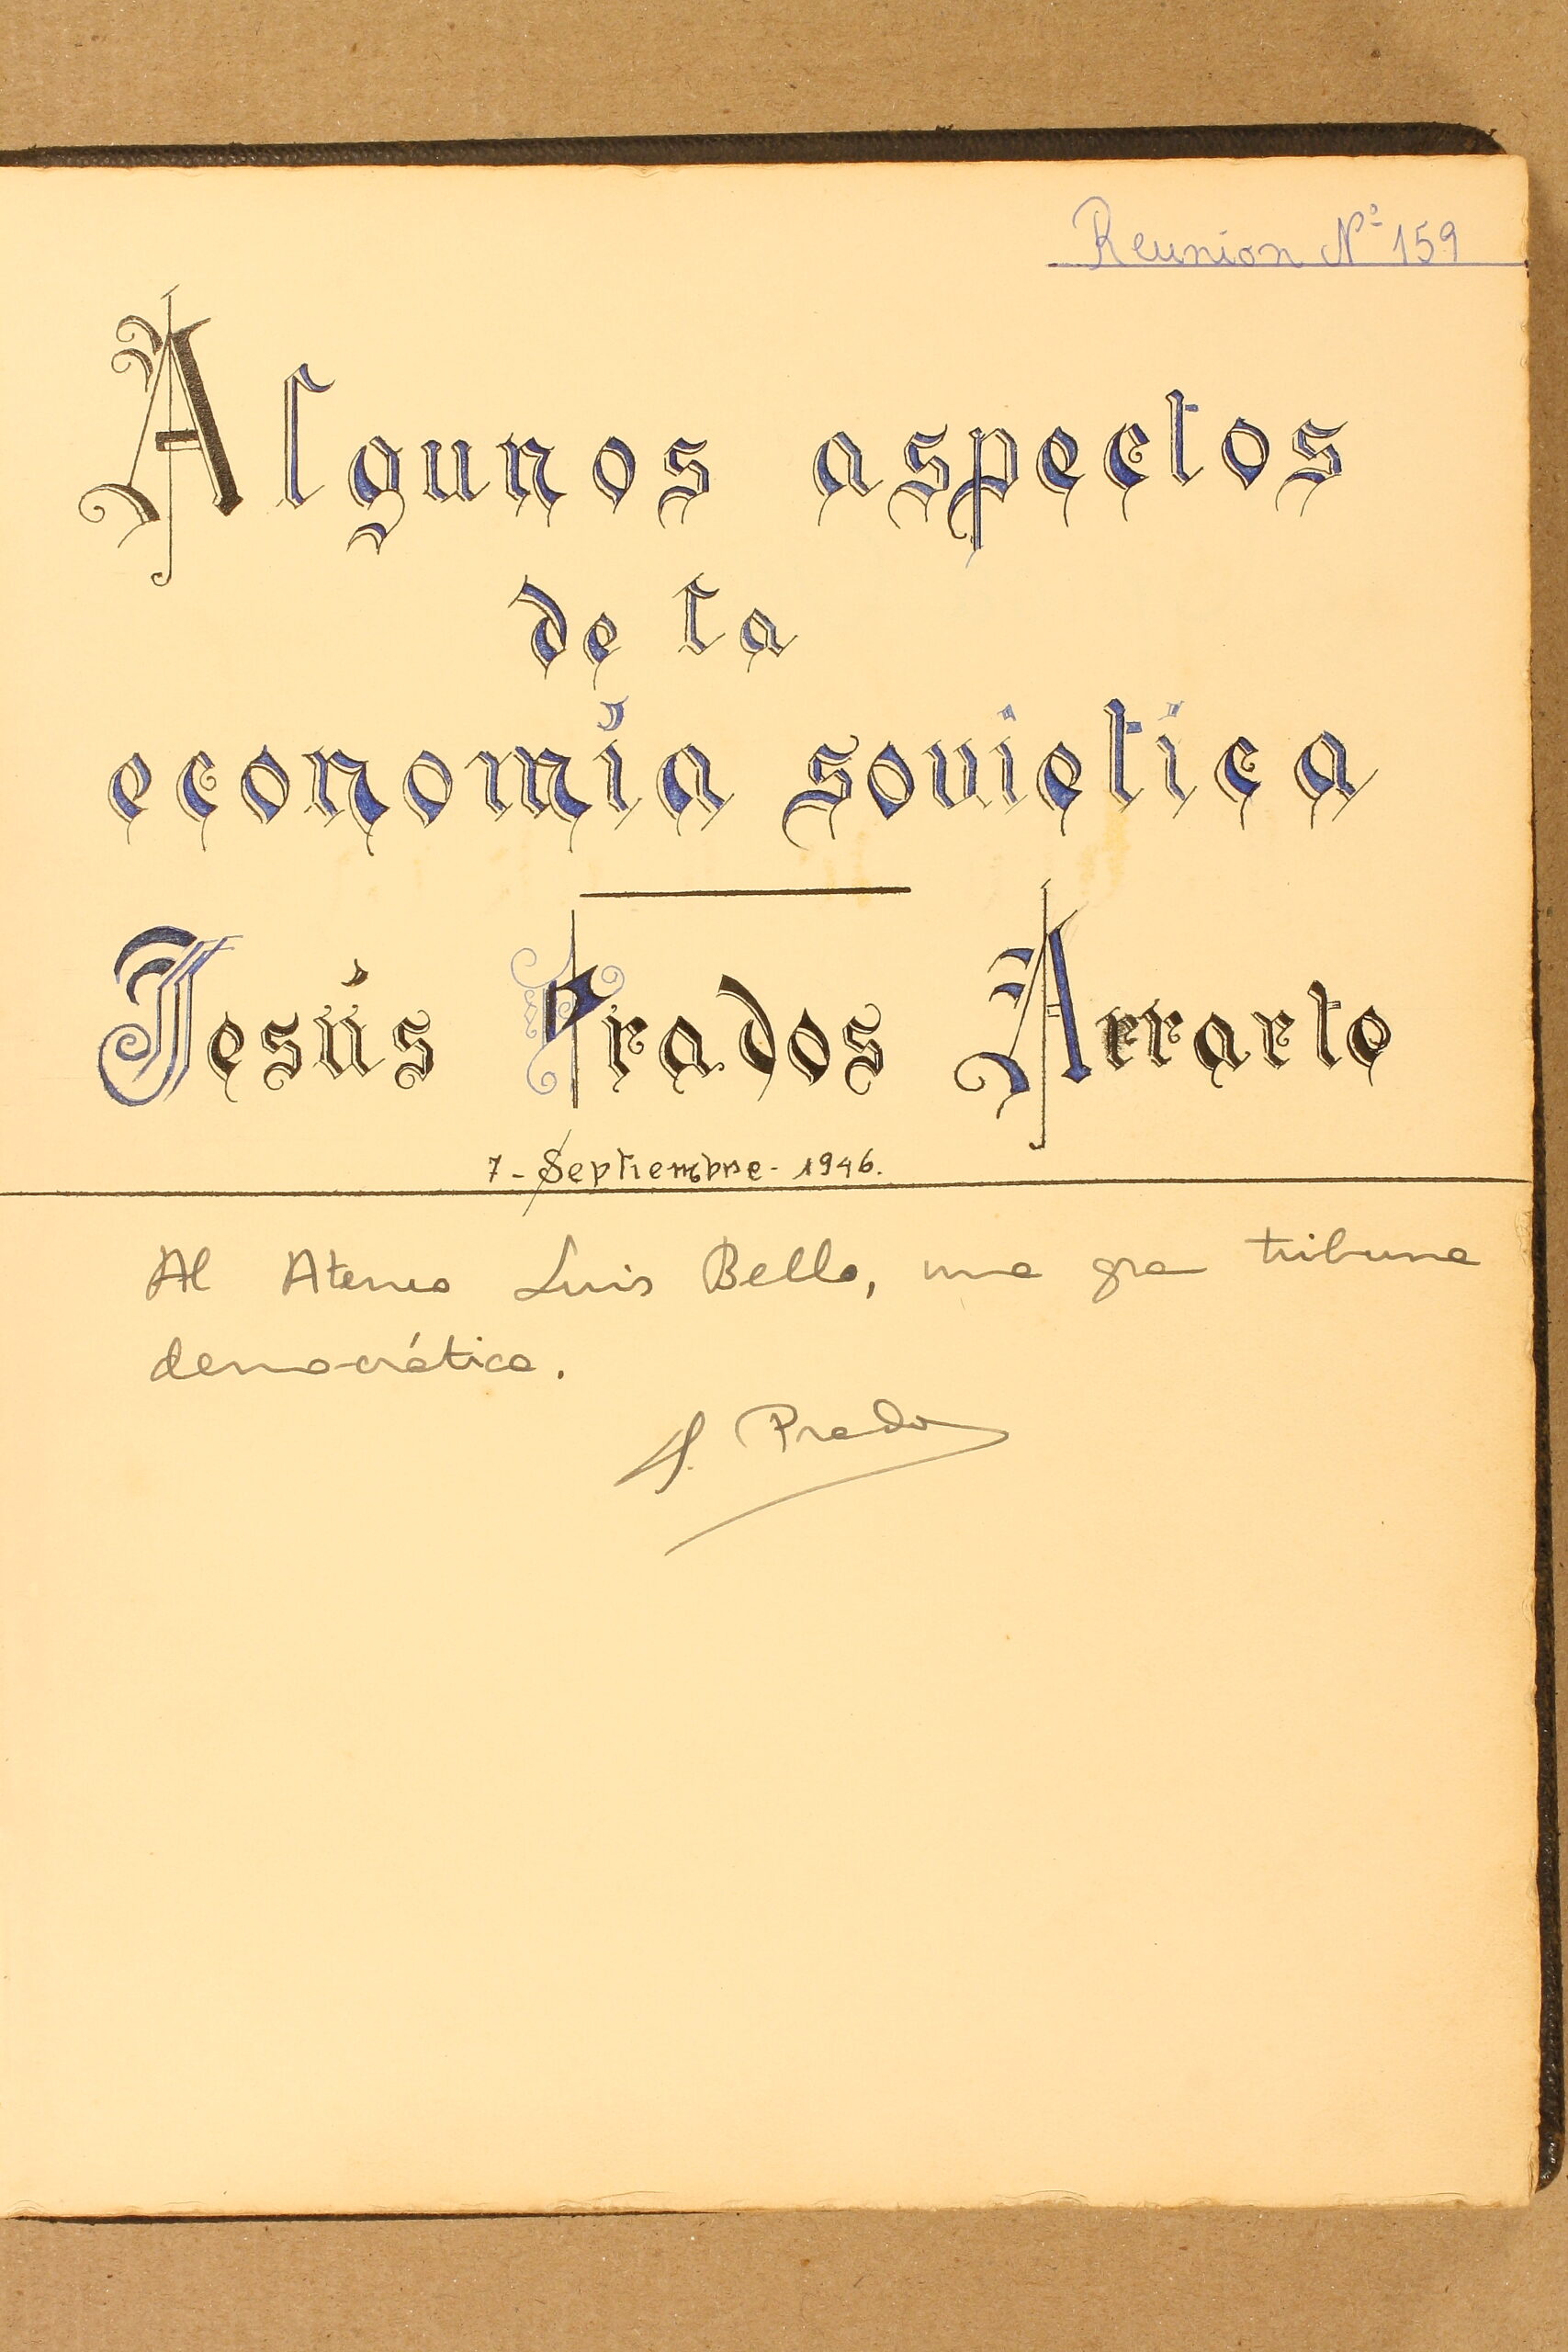 Reunion Nº 159
Algunos aspectos
de la
economía sovietica
Jesús Prados Arrarte
7-Septiembre-1946.
Al Ateneo Luis Bello, una gra tribuna
democrática.
Prados